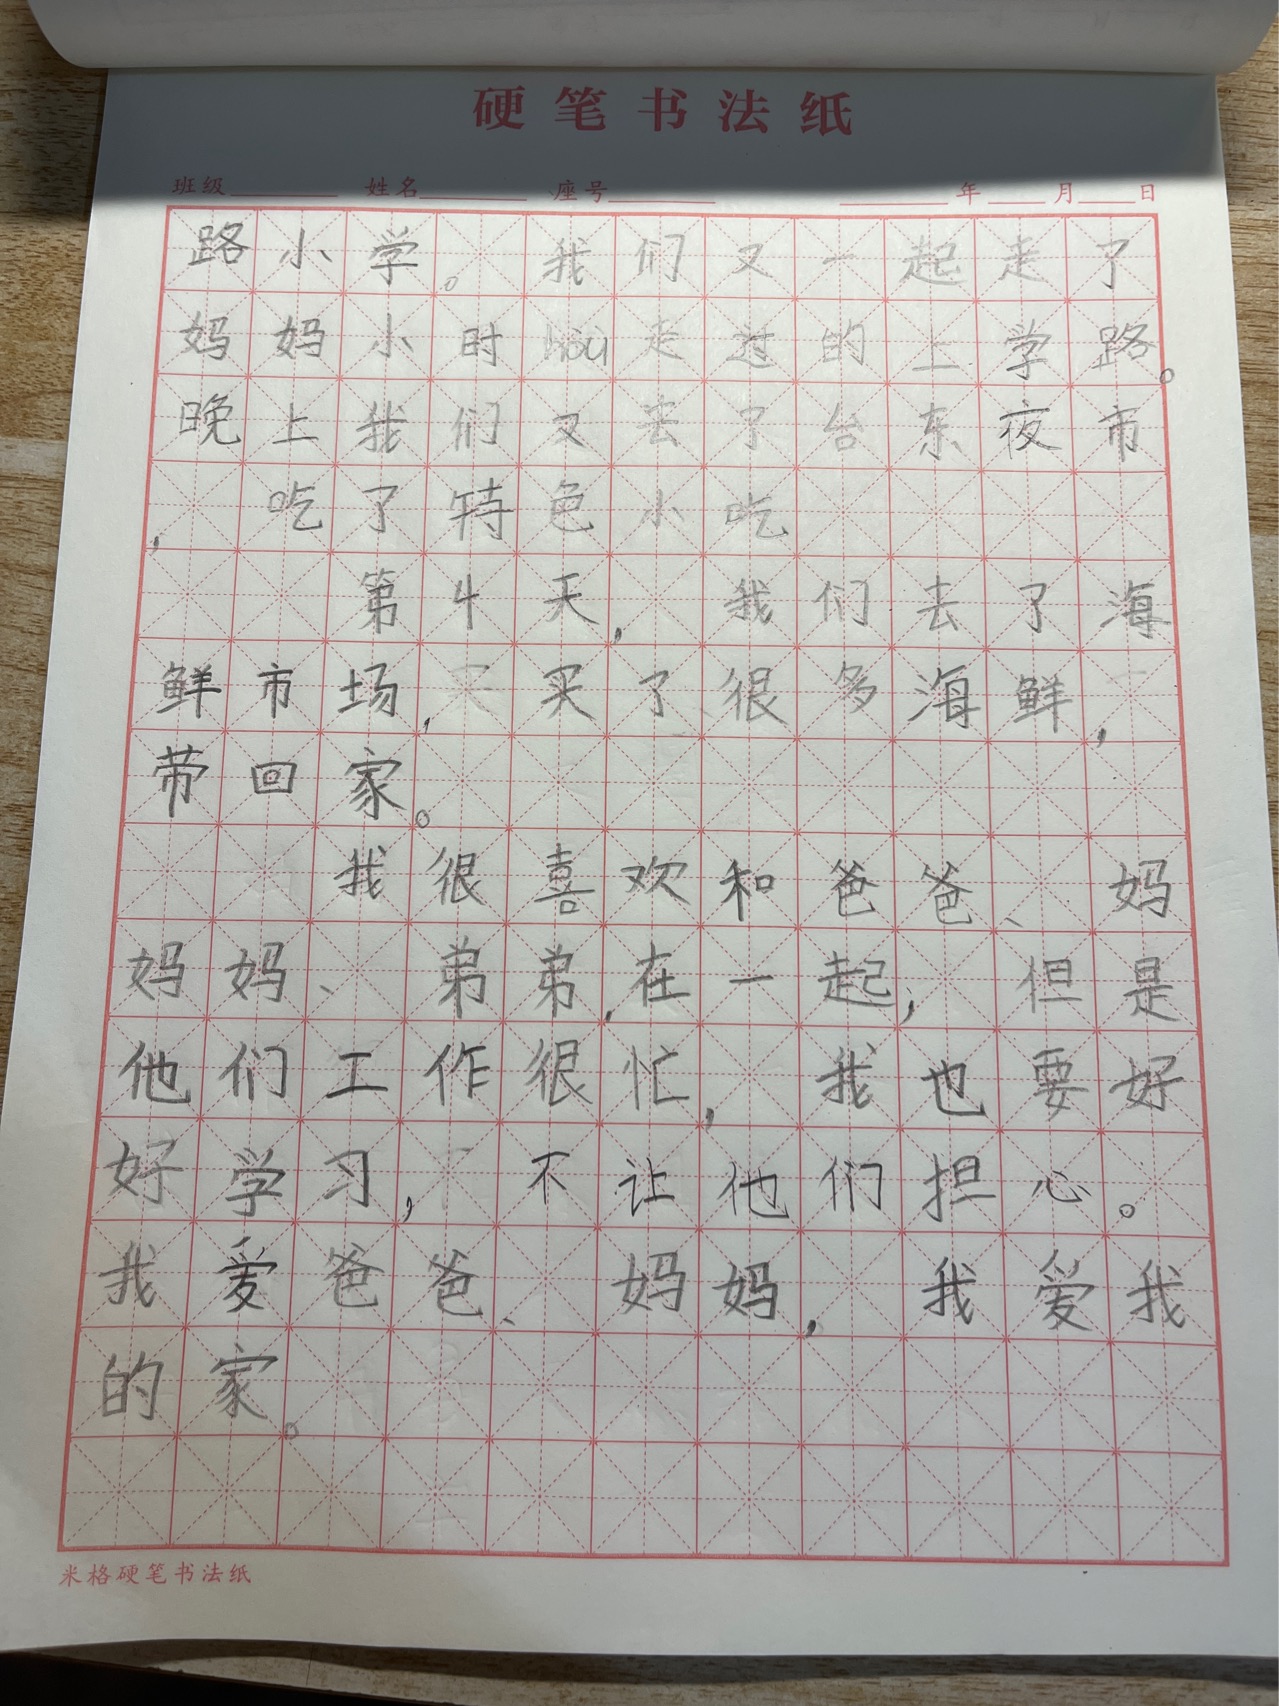 硬笔书法纸
班级 姓名 座号 年 月 日
路小学。我们又一起走了
妈妈小时hòu走过的上学路。
晚上我们又去了台东夜市
，吃了特色小吃
第4天，我们去了海
鲜市场，买了很多海鲜，
带回家。
我很喜欢和爸爸、妈
妈妈、弟弟，在一起，但是
他们工作很忙，我也要好
好学习，不让他们担心。
我爱爸爸、妈妈，我爱我
的家。
米格硬笔书法纸